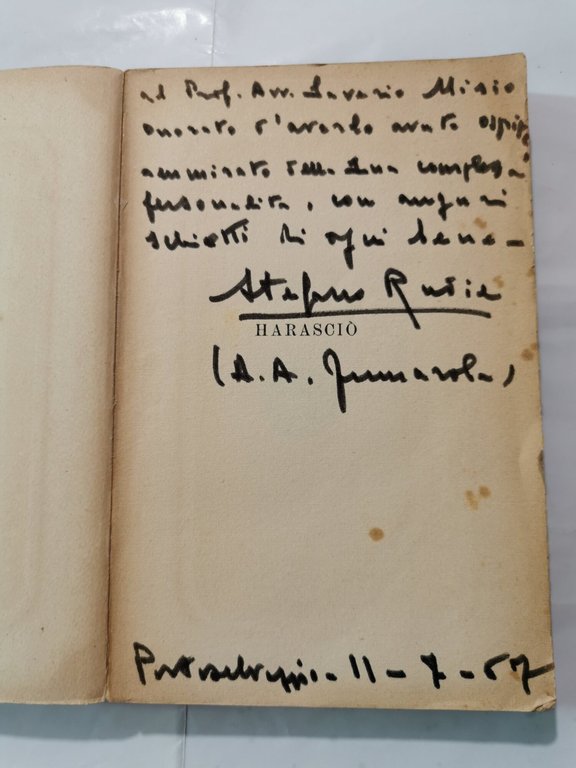 al Prof. Avv. Saverio Misio
onorato d'averlo avuto ospite
ammirato della sua complessa
personalità, con auguri
schietti di ogni bene -
Stefano Rudie
HARASCIÒ
(A. A. Fumarola)
Portoselvaggio - 11 - 7 - 67